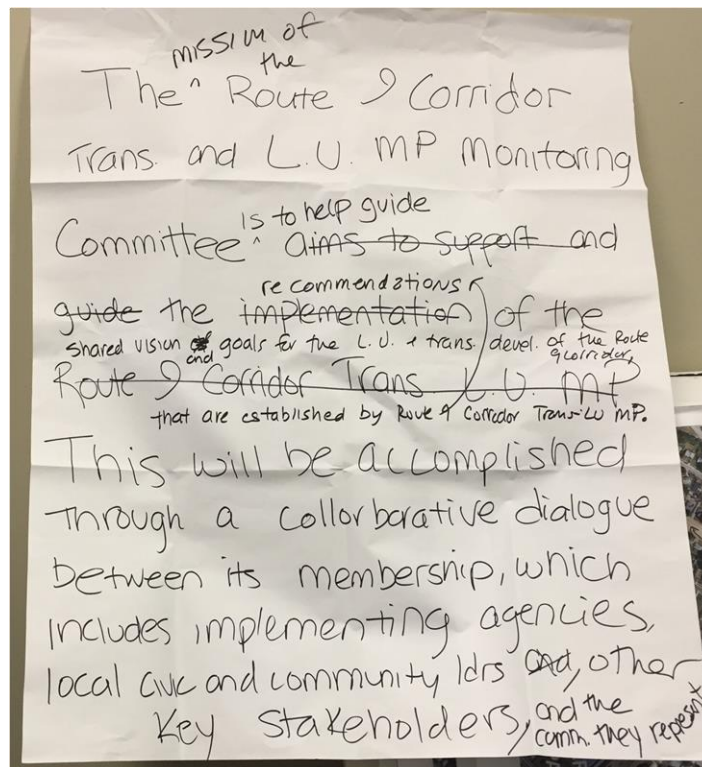 mission of
the
The ^ Route 9 Corridor
Trans. and L.U. MP Monitoring
is to help guide
Committee ^ aims to support and
recommendations
guide the implementation of the
shared vision and goals for the L.U. & trans. devel. of the Route
9 corridor,
Route 9 Corridor Trans L.U. MP
that are established by Route 9 Corridor Trans & LU MP.
This will be accomplished
Through a collorborative dialogue
between its membership, which
includes implementing agencies,
local civic and community ldrs and, other
Key Stakeholders, and the
comm. they represent